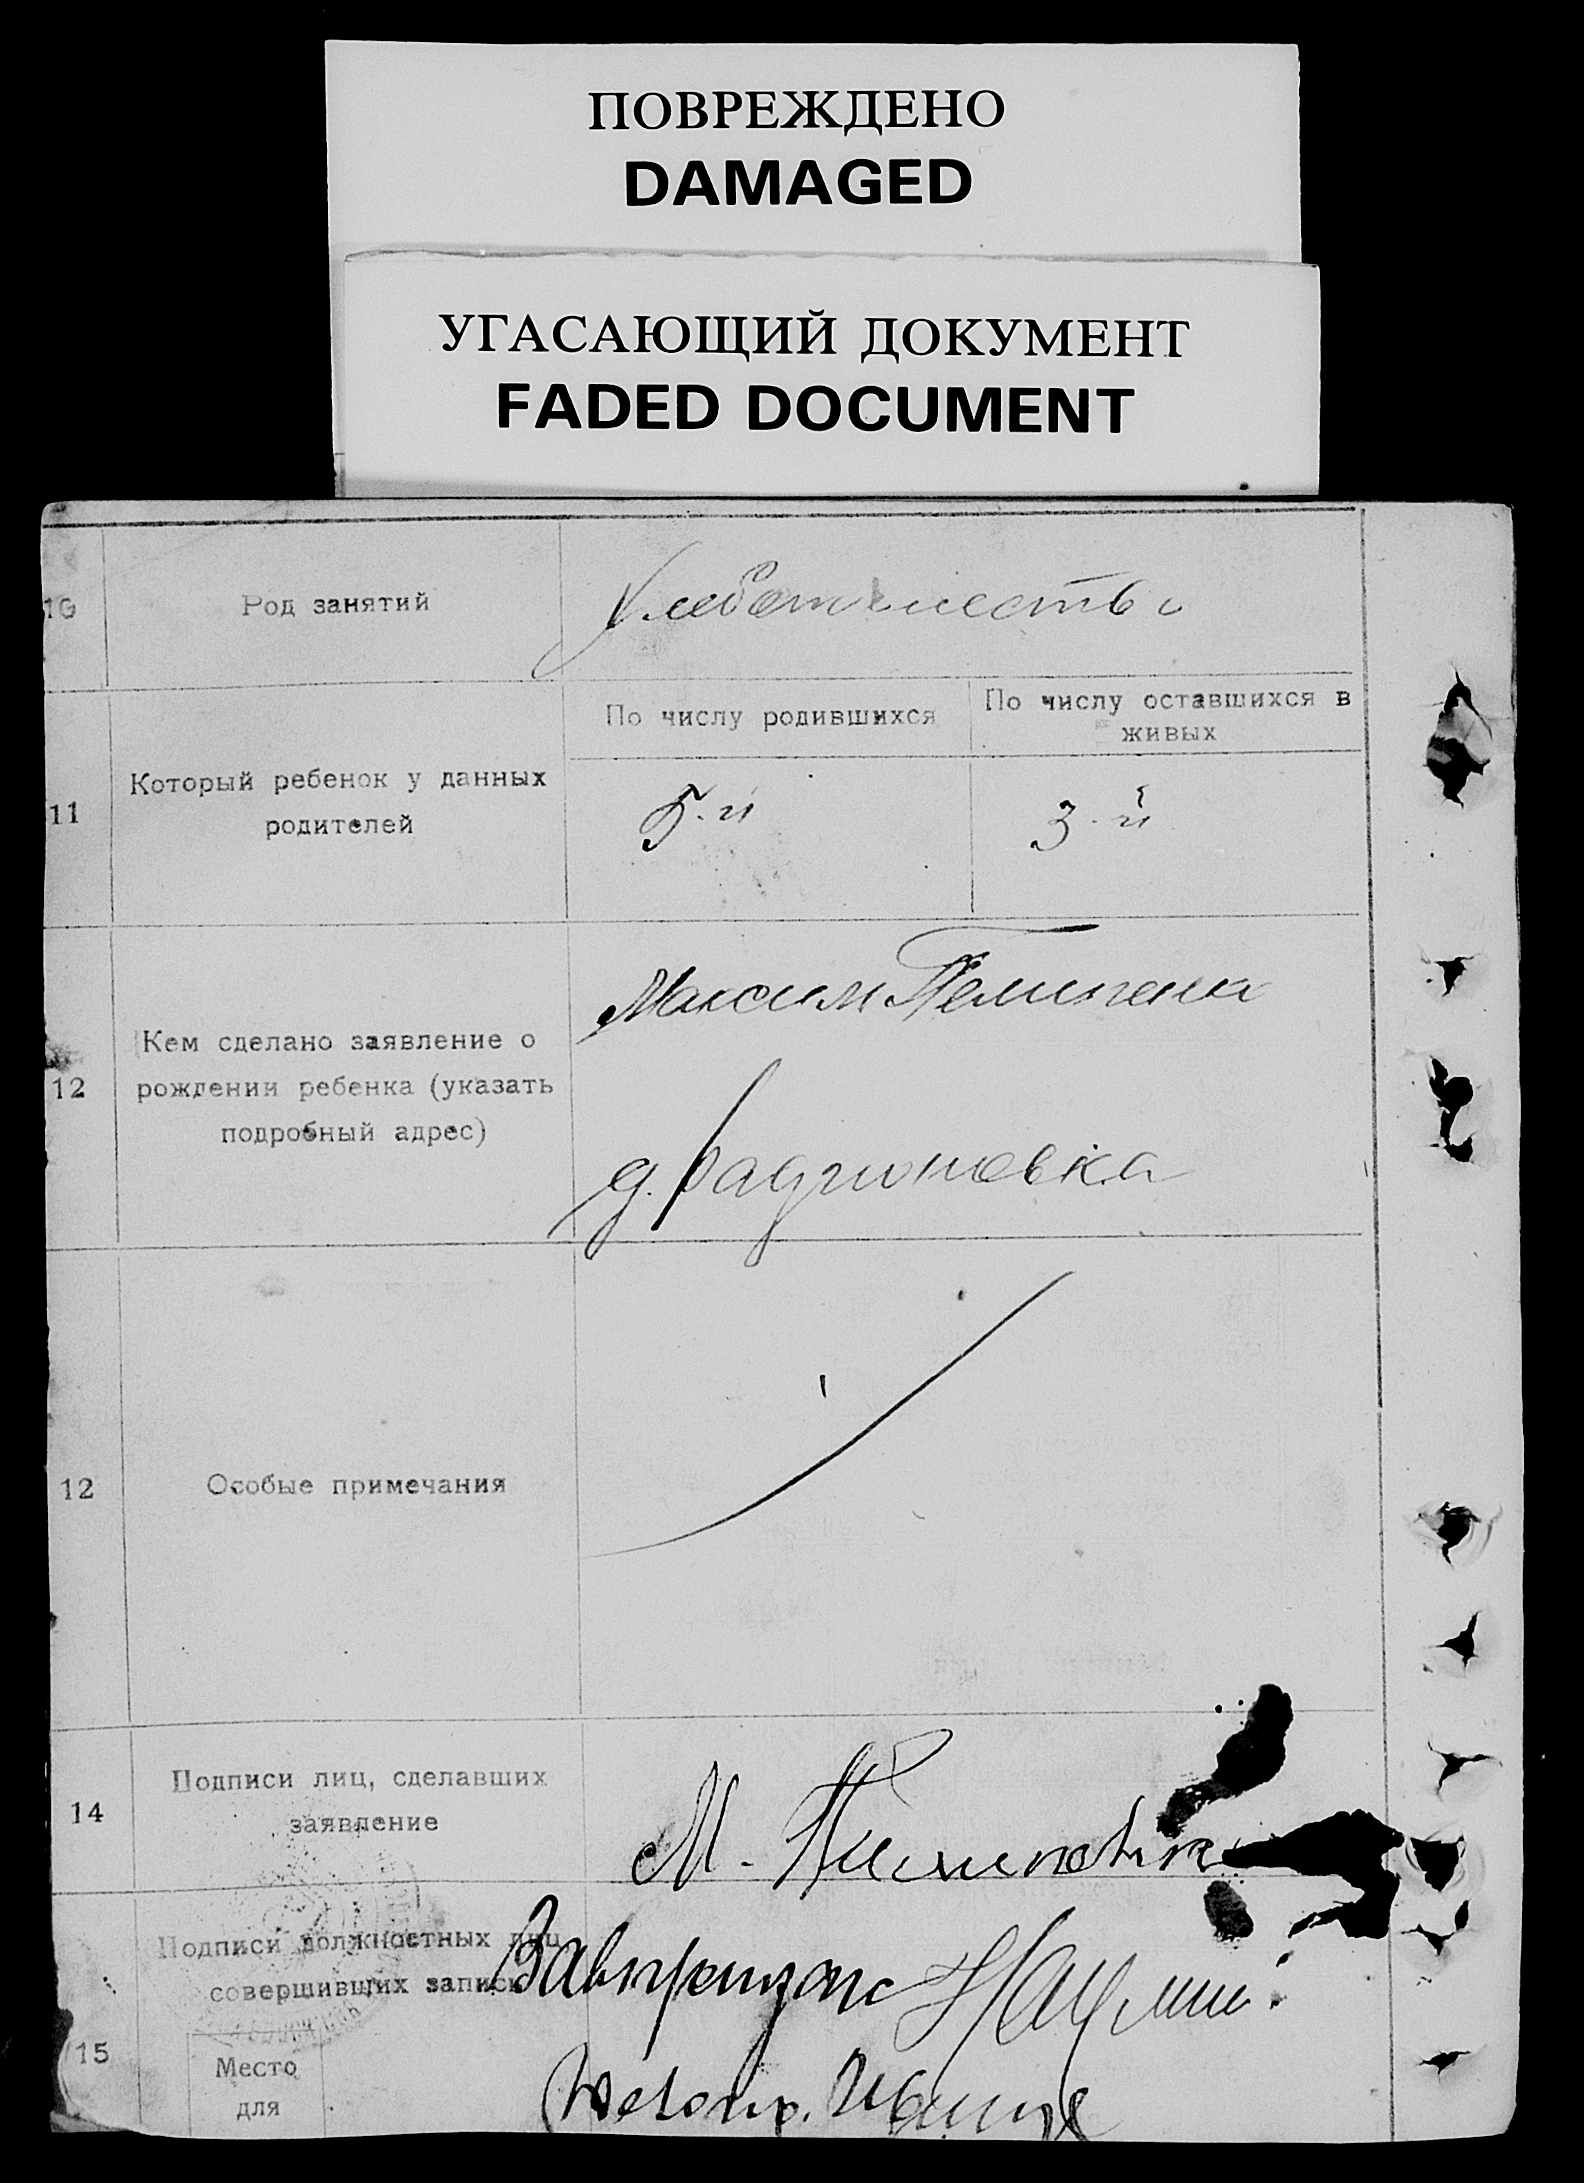 ПОВРЕЖДЕНО
DAMAGED
УГАСАЮЩИЙ ДОКУМЕНТ
FADED DOCUMENT
10
Род занятий
Хлебопашество
11
Который ребенок у данных
родителей
По числу родившихся
По числу оставшихся в
живых
5-й
3-й
12
Кем сделано заявление о
рождении ребенка (указать
подробный адрес)
Максим
д. Радионовка
12
Особые примечания
14
Подписи лиц, сделавших
заявление
М.
15
Подписи должностных лиц
совершивших запись
Место
для